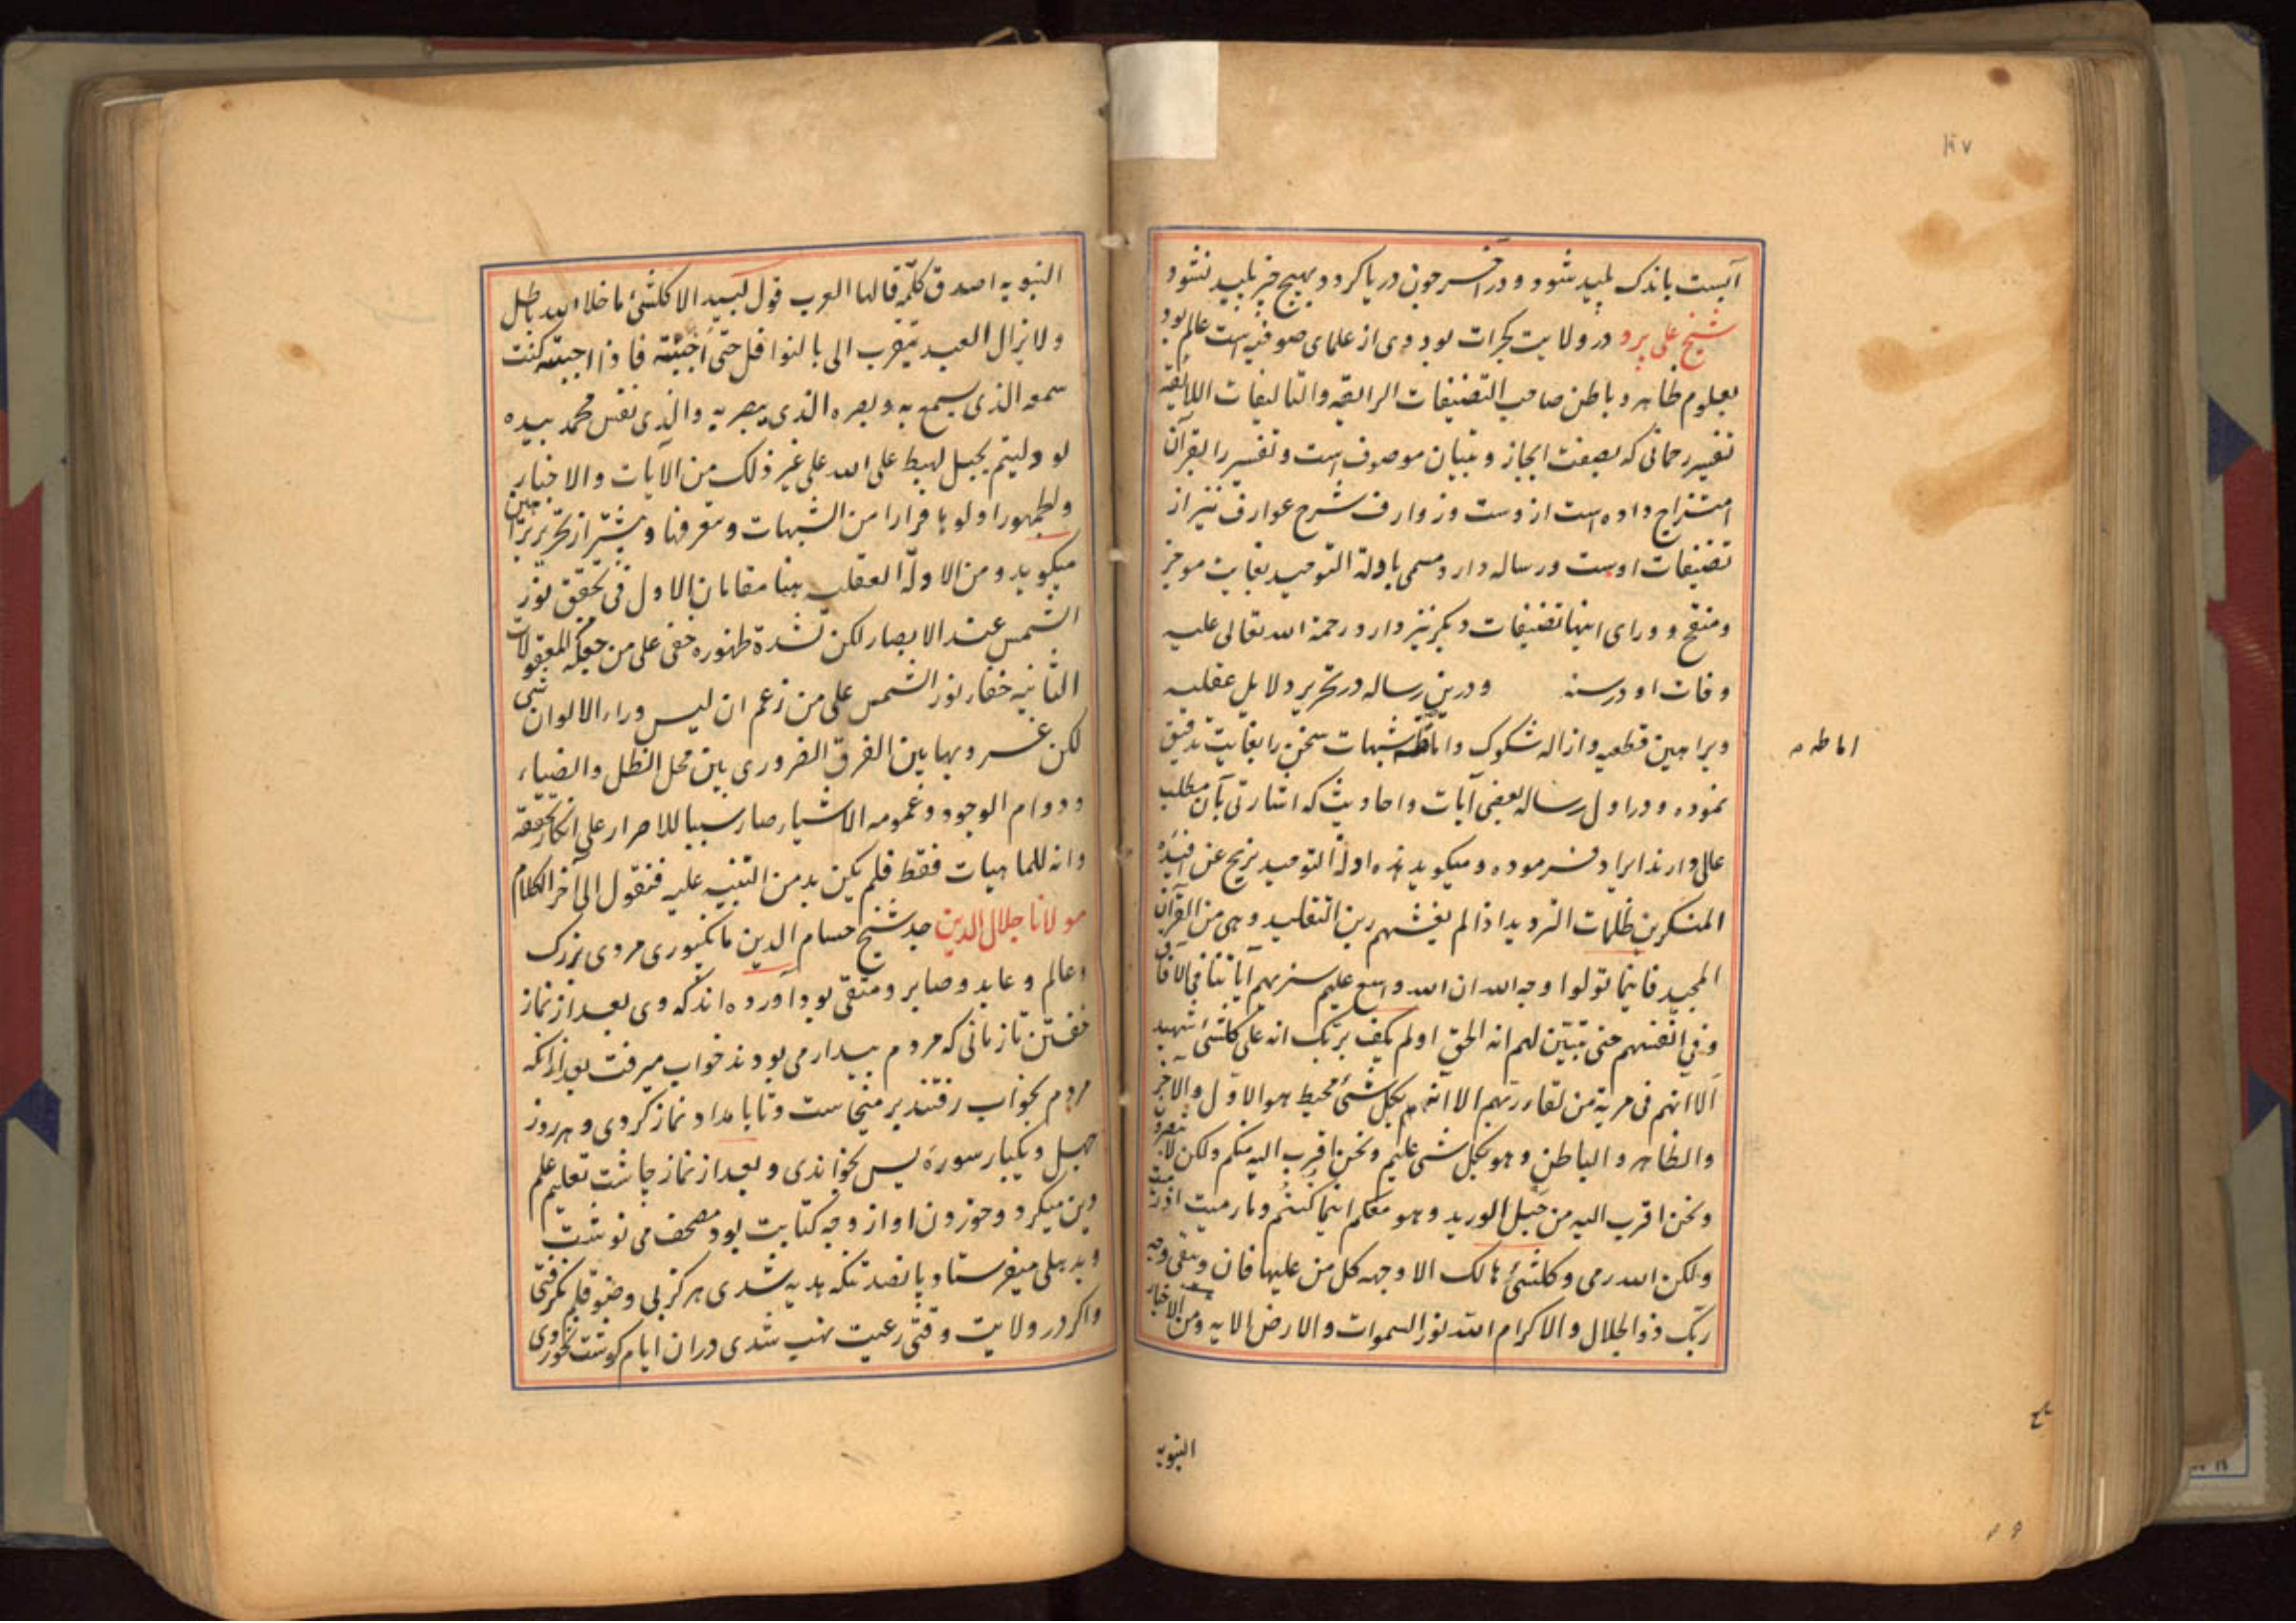 ۱۹۷
آبست باندک پلید شود و در آخر چون دریا کردد بهیچ چیز پلید نشود
شیخ علی پرو در ولایت کجرات بود وی از علمای صوفیه است عالم بود
بعلوم ظاهر و باطن صاحب التصنیفات الرایقه والتالیفات اللایقه
تفسیر رحمانی که بصفت ایجاز و تبیان موصوف است و تفسیر را بقرآن
امتزاج داده است ازوست و زوارف شرح عوارف نیز از
تصنیفات اوست و رساله دارد مسمی بادلة التوحید بغایت موجز
ومنقح و ورای اینها تصنیفات دیکر نیز دارد رحمة الله تعالی علیه
وفات او در سنه و درین رساله در تحریر دلایل عقلیه
وبراهین قطعیه وازاله شکوک واماطه شبهات سخن را بغایت تدقیق
اماطه
نموده و در اول رساله بعضی آیات واحادیث که اشارتی بآن مطلب
عالی دارند ایراد فرموده و میکوید هذه ادلة التوحید تزیح عن افئدة
المنکرین ظلمات التردید اذا لم یغشهم رین التقلید وهی من القرآن
المجید فاینما تولوا وجه الله ان الله واسع علیم سنریهم آیاتنا فی الآفاق
وفی انفسهم حتی یتبین لهم انه الحق اولم یکف بربک انه علی کلشئ شهید
الا انهم فی مریة من لقاء ربهم الا انه بکل شئ محیط هو الاول والآخر
والظاهر والباطن وهو بکل شئ علیم ونحن اقرب الیه منکم ولکن لا تبصرون
ونحن اقرب الیه من حبل الورید وهو معکم اینما کنتم وما رمیت اذ رمیت
ولکن الله رمی وکلشئ هالک الا وجهه کل من علیها فان ویبقی وجه
ربک ذو الجلال والاکرام الله نور السموات والارض الایه ومن الاخبار
النبویه
النبویه اصدق کلمة قالها العرب قول لبید الا کلشئ ما خلا الله باطل
ولا یزال العبد یتقرب الی بالنوافل حتی احبته فاذا احببته کنت
سمعه الذی یسمع به وبصره الذی یبصر به والذی نفس محمد بیده
لو دلیتم بحبل لهبط علی الله علی غیر ذلک من الآیات والاخبار
ولظهورها اولوها فرارا من الشبهات وستعرفها و پیشتر از تحریر براهین
میکوید ومن الادلة العقلیه بینا مقامان الاول فی تحقق نور
الشمس عند الابصار لکن لشدة ظهوره خفی علی من جعله المعقولات
الثانیه خفاء نور الشمس علی من زعم ان لیس وراء الالوان شئ
لکن غروبها یبین الفرق الضروری بین محل الظل والضیاء
ودوام الوجود وعمومه الاشیاء صار سببا للاصرار علی انکار تحققه
وانه للماهیات فقط فلم یکن بد من التنبیه علیه فنقول الی آخر الکلام
مولانا جلال الدین جد شیخ حسام الدین مانکپوری مردی بزرک
وعالم و عابد و صابر و متقی بود آورده اند که وی بعد از نماز
خفتن تا زمانی که مردم بیدار می بودند خواب میرفت بعد ازانکه
مردم بخواب رفتند برمیخاست و تا بامداد نماز کردی و هر روز
چهل و یکبار سورة یس بخواندی و بعد از نماز چاشت تعلیم علم
دین میکرد و خوردن او از وجه کتابت بود مصحف می نوشت
و بدهلی میفرستاد پانصد تنکه هدیه شدی هرکز بی وضو قلم نکرفتی
واکر در ولایت وقتی رعیت نهب شدی دران ایام کوشت نخوردی